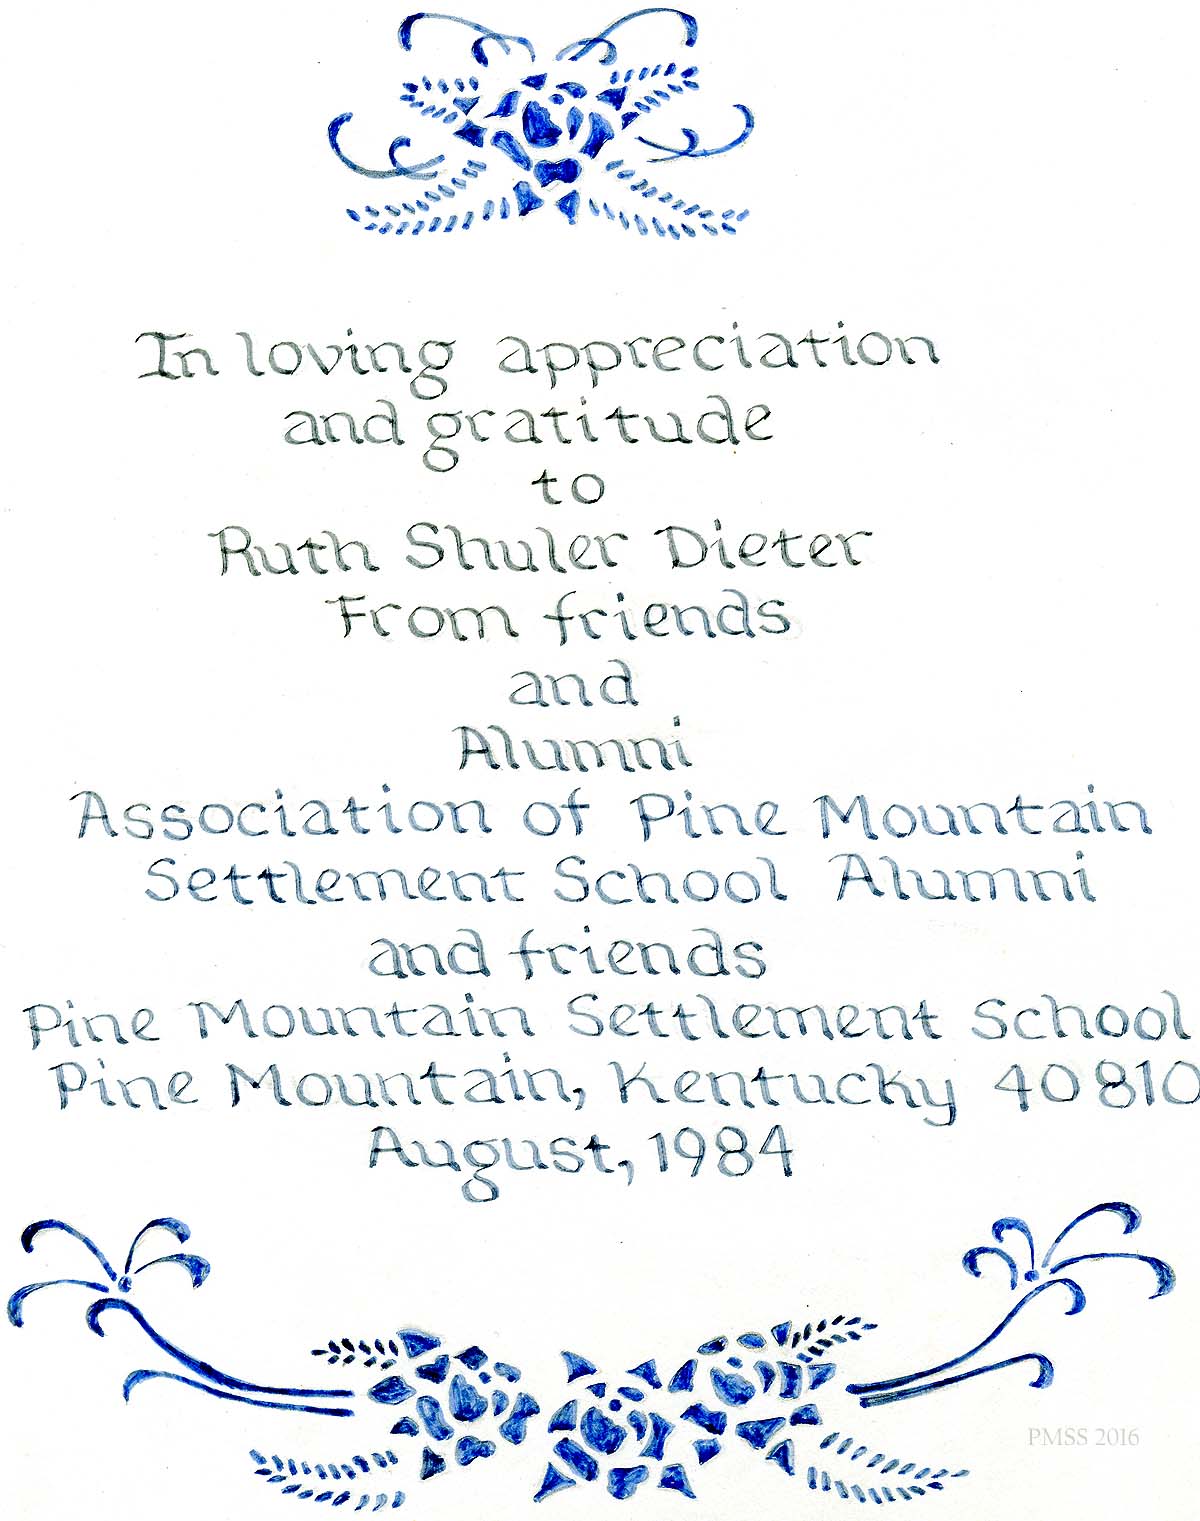 In loving appreciation
and gratitude
to
Ruth Shuler Dieter
From friends
and
Alumni
Association of Pine Mountain
Settlement School Alumni
and friends
Pine Mountain Settlement School
Pine Mountain, Kentucky 40810
August, 1984
PMSS 2016